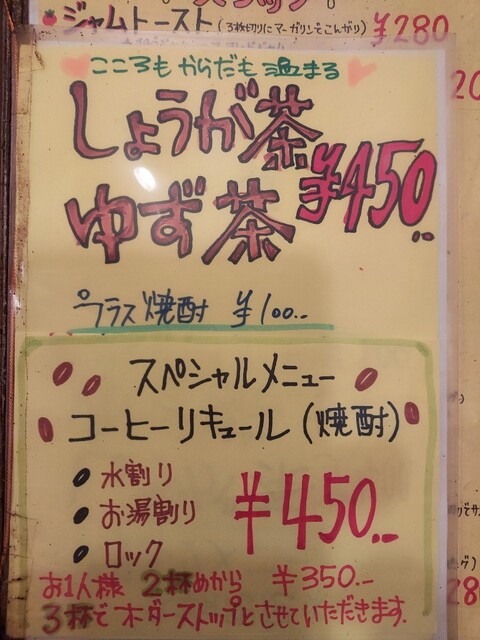 ジャムトースト(3枚切りにマーガリンでこんがり) ¥280
こころもからだも温まる
しょうが茶
ゆず茶 ¥450..
プラス焼酎 ¥100..
スペシャルメニュー
コーヒーリキュール(焼酎)
水割り
お湯割り
ロック
¥450..
お1人様 2杯めから ¥350.-
3杯でオーダーストップとさせていただきます.